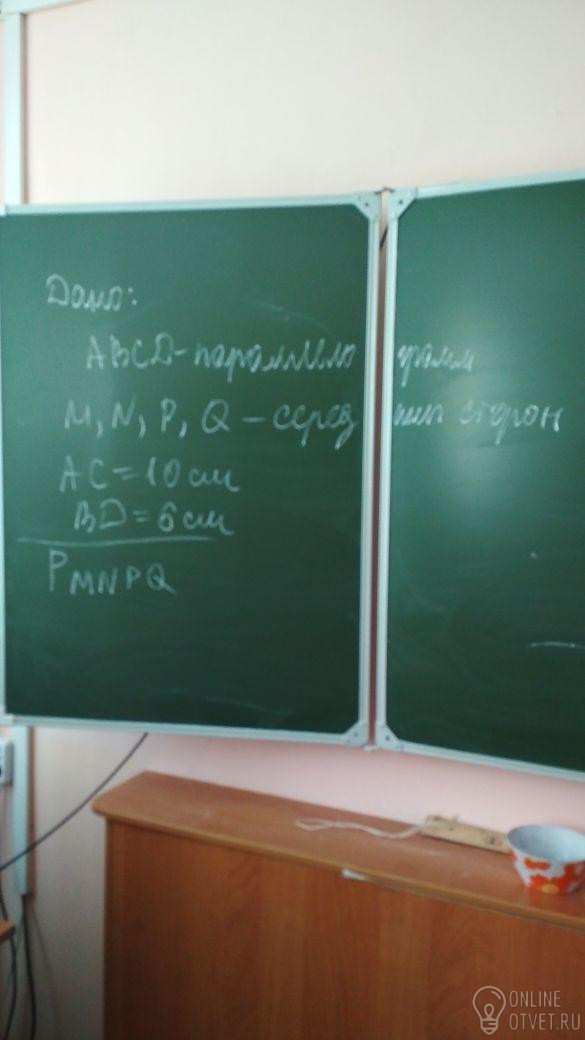 Дано:
ABCD - параллелограмм
M, N, P, Q - середины сторон
AC = 10 см
BD = 6 см
PMNPQ
ONLINE
OTVET.RU